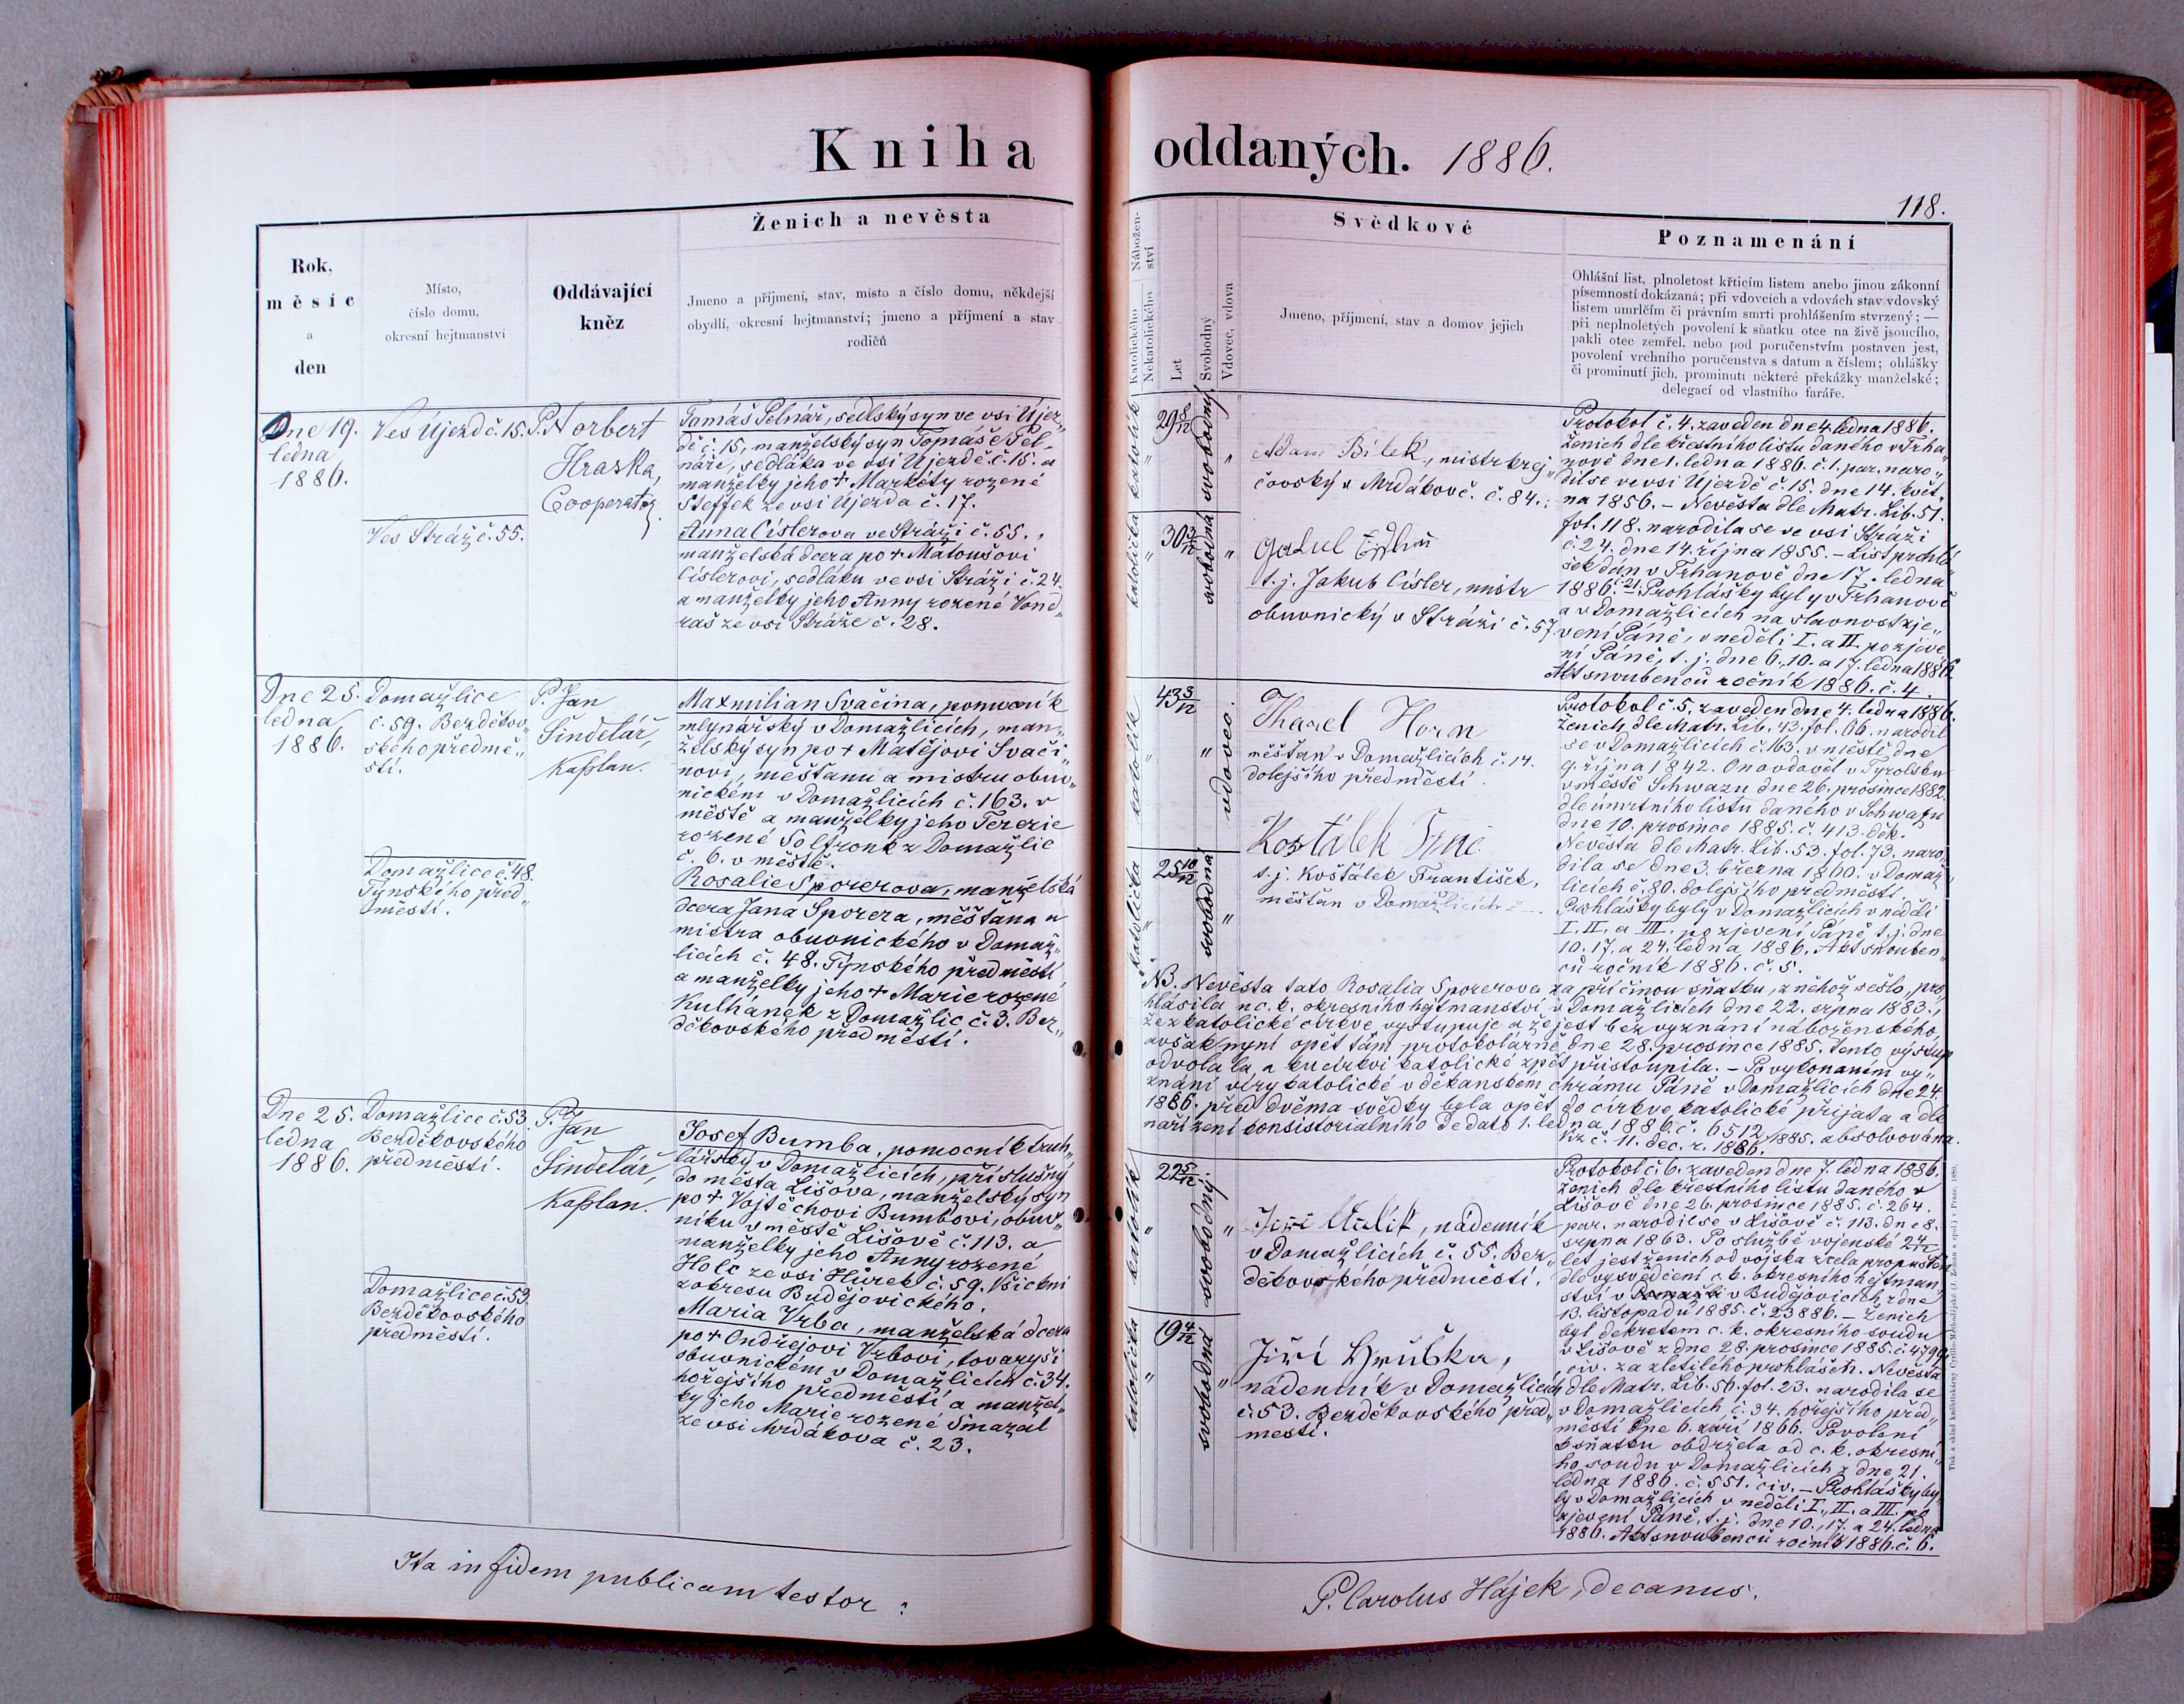 Kniha oddaných. 1886.
118.
Rok,
měsíc
a
den
Místo,
číslo domu,
okresní hejtmanství
Oddávající
kněz
Ženich a nevěsta
Jmeno a příjmení, stav, místo a číslo domu, někdejší
obydlí, okresní hejtmanství; jmeno a příjmení a stav
rodičů
Nábožen-
ství
Katolického
Nekatolického
Let
Svobodný
Vdovec, vdova
Svědkové
Jmeno, příjmení, stav a domov jejich
Poznamenání
Ohlášní list, plnoletost křticím listem anebo jinou zákonní
písemností dokázaná; při vdovcích a vdovách stav vdovský
listem umrlčím či právním smrti prohlášením stvrzený; —
při neplnoletých povolení k sňatku otce na živě jsoucího,
pakli otec zemřel, nebo pod poručenstvím postaven jest,
povolení vrchního poručenstva s datum a číslem; ohlášky
či prominutí jich, prominutí některé překážky manželské;
delegací od vlastního faráře.
Dne 19.
ledna
1886.
Ves Újezd č. 15.
Ves Stráž č. 55.
P. Norbert
Hraska,
Cooperator.
Tomáš Pelnář, sedlský syn ve vsi Újez„
dě č. 15, manželský syn Tomáše Pel-
náře, sedláka ve vsi Újezdě č. 15. a
manželky jeho + Markéty rozené
Steffek ze vsi Újezda č. 17.
Anna Císlerova ve Stráži č. 55.,
manželská dcera po + Matoušovi
Císlerovi, sedláku ve vsi Stráži č. 24.
a manželky jeho Anny rozené Vond„
raš ze vsi Stráže č. 28.
katolík
29 8/12
svobodný
katolička
30 3/12
svobodná
Adam Bílek, mistr krej„
čovský v Mrdákově. č. 84.
t. j. Jakub Císler, mistr
obuvnický v Stráži č. 57
Protokol č. 4. zaveden dne 4. ledna 1886.
Ženich dle křestního listu daného v Trha„
nově dne 1. ledna 1886. č. 1. par. naro„
dil se ve vsi Újezdě č. 15. dne 14. květ„
na 1856. – Nevěsta dle Matr. Lib. 51.
fol. 118. narodila se ve vsi Stráži
č. 24. dne 14. října 1855. – List prohlá„
šek dán v Trhanově dne 17. ledna
1886. č. 21. – Prohlášky byly v Trhanově
a v Domažlicích na slavnost zje„
vení Páně, v neděli I. a II. po zjeve„
ní Páně, t. j. dne 6., 10. a 17. ledna 1886.
Akt snoubenců ročník 1886. č. 4.
Dne 25.
ledna
1886.
Domažlice
č. 59. Bezděkov„
ského předmě„
stí.
Domažlice č. 48.
Týnského před„
městí.
P. Jan
Šindelář,
Kaplan.
Maxmilian Svačina, pomocník
mlynářský v Domažlicích, man„
želský syn po + Matějovi Svači„
novi, měšťanu a mistru obuv„
nickém v Domažlicích č. 163. v
městě a manželky jeho Terezie
rozené Soltronk z Domažlic
č. 6. v městě.
Rosalie Sporerova, manželská
dcera Jana Sporera, měšťana a
mistra obuvnického v Domaž„
licích č. 48. Týnského předměstí,
a manželky jeho + Marie rozené
Kulhánek z Domažlic č. 3. Bez„
děkovského předměstí.
katolík
43 3/12
vdovec.
katolička
25 10/12
svobodná
Horn
měšťan v Domažlicích č. 14.
dolejšího předměstí.
Košťálek
t. j. Košťálek František,
měšťan v Domažlicích č –.
Protokol č. 5. zaveden dne 4. ledna 1886.
Ženich dle Matr. Lib. 43. fol. 66. narodil
se v Domažlicích č. 163. v městě dne
9. října 1842. On ovdověl v Tyrolsku
v městě Schwazu dne 26. prosince 1882.
dle úmrtního listu daného v Schwazu
dne 10. prosince 1885. č. 413. děk.
Nevěsta dle Matr. Lib. 53. fol. 73. naro„
dila se dne 3. března 1860. v Domaž„
licích č. 80. dolejšího předměstí.
Prohlášky byly v Domažlicích v neděli
I. II. a III. po zjevení Páně t. j. dne
10. 17. a 24. ledna 1886. Akt snouben„
ců ročník 1886. č. 5.
NB. Nevěsta tato Rosalia Sporerova za příčinou sňatku, z něhož sešlo, pro„
hlásila u c. k. okresního hejtmanství v Domažlicích dne 22. srpna 1883.,
že z katolické církve vystupuje a že jest bez vyznání náboženského,
avšak nyní opět tam protokolárně dne 28. prosince 1885. tento výstup
odvolala, a ku církvi katolické zpět přistoupila. – Po vykonaném vy„
znání víry katolické v děkanském chrámu Páně v Domažlicích dne 24.
1886. před dvěma svědky byla opět do církve katolické přijata a dle
nařízení konsistorialního de dato 1. ledna 1886. č. 6512/1885. absolvována.
Kz č. 11. dec. r. 1886.
Dne 25.
ledna
1886.
Domažlice č. 53.
Bezděkovského
předměstí.
Domažlice č. 53.
Bezděkovského
předměstí.
P. Jan
Šindelář,
Kaplan.
Josef Bumba, pomocník truh„
lářský v Domažlicích, příslušný
do města Lišova, manželský syn
po + Vojtěchovi Bumbovi, obuv„
níku v městě Lišově č. 113. a
manželky jeho Anny rozené
Holc ze vsi Hůrek č. 59. Všickni
z okresu Budějovického.
Maria Vrba, manželská dcera
po + Ondřejovi Vrbovi, tovaryši
obuvnickém v Domažlicích č. 34.
hořejšího předměstí a manžel„
ky jeho Marie rozené Smazal
ze vsi Mrdákova č. 23.
katolík
22 5/12
svobodný.
katolička
19 4/12
svobodná
Jiří, nádenník
v Domažlicích č. 55. Bez„
děkovského předměstí.
Jiří Hruška,
nádenník v Domažlicích
č. 53. Bezděkovského před„
městí.
Protokol č. 6. zaveden dne 7. ledna 1886.
Ženich dle křestního listu daného v
Lišově dne 26. prosince 1885. č. 264.
par. narodil se v Lišově č. 113. dne 8.
srpna 1863. Po službě vojenské 2 4/12
let jest ženich od vojska zcela propuštěn
dle vysvědčení c. k. okresního hejtman„
ství v Budějovicích z dne
13. listopadu 1885. č. 23886. – Ženich
byl dekretem c. k. okresního soudu
v Lišově z dne 28. prosince 1885. č. 4790
civ. za zletilého prohlášen. Nevěsta
dle Matr. Lib. 56. fol. 23. narodila se
v Domažlicích č. 34. hořejšího před„
městí dne 6. září 1866. Povolení
k sňatku obdržela od c. k. okresní„
ho soudu v Domažlicích z dne 21.
ledna 1886. č. 551. civ. – Prohlášky by„
ly v Domažlicích v neděli I., II. a III. po
zjevení Páně, t. j. dne 10., 17. a 24. ledna
1886. Akt snoubenců ročník 1886. č. 6.
Ita in fidem publicam testor:
P. Carolus Hájek, decanus.